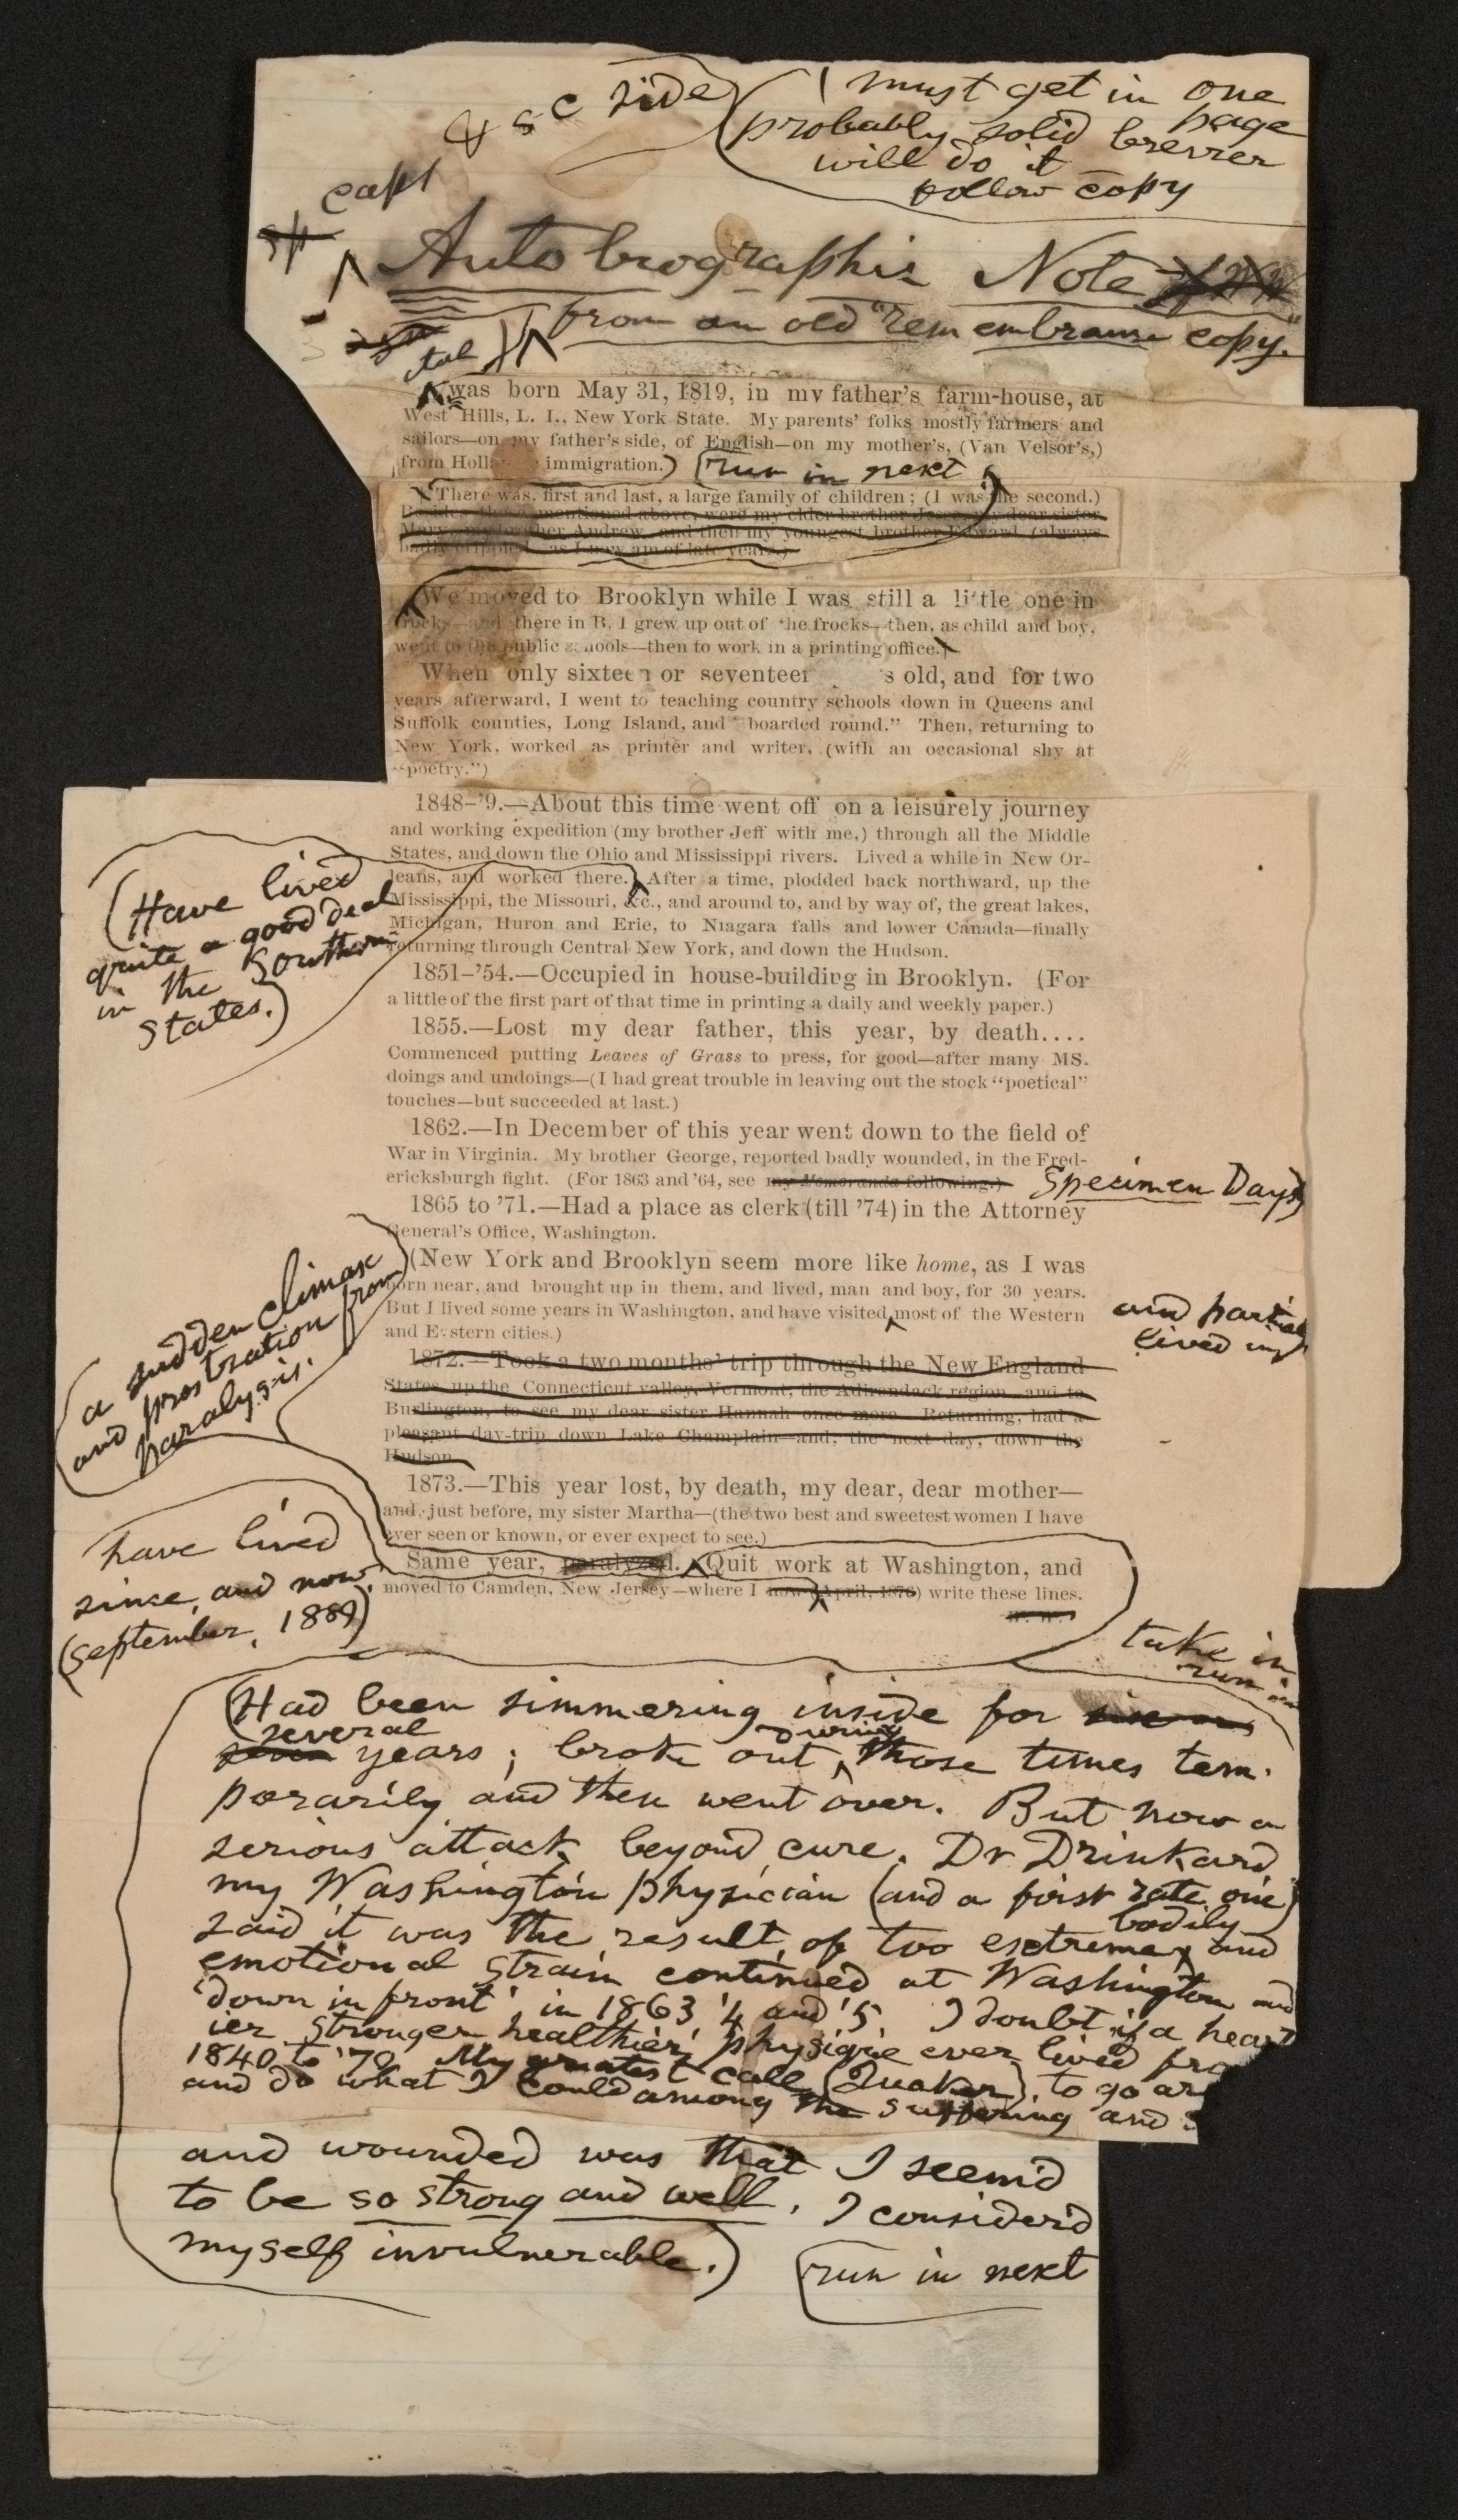 & s c side
must get in one
page
probably solid brevier
will do it
follow copy
caps
Autobiographic Note
from an old "remembrance copy."
ital
was born May 31, 1819, in my father's farm-house, at
West Hills, L. I., New York State. My parents' folks mostly farmers and
sailors—on my father's side, of English—on my mother's, (Van Velsor's,)
from Holland immigration.) run in next
There was, first and last, a large family of children; (I was the second.)
Besides those mentioned above, were my elder brother Jesse, my dear sister
Mary, my brother Andrew, and then my youngest brother Edward, (always
badly crippled, as I now am of late years.)
We moved to Brooklyn while I was still a little one in
frocks—and there in B. I grew up out of the frocks—then, as child and boy,
went to the public schools—then to work in a printing office.
When only sixteen or seventeen s old, and for two
years afterward, I went to teaching country schools down in Queens and
Suffolk counties, Long Island, and "boarded round." Then, returning to
New York, worked as printer and writer, (with an occasional shy at
"poetry.")
1848-'9.—About this time went off on a leisurely journey
and working expedition (my brother Jeff with me,) through all the Middle
States, and down the Ohio and Mississippi rivers. Lived a while in New Or-
leans, and worked there. After a time, plodded back northward, up the
Mississippi, the Missouri, &c., and around to, and by way of, the great lakes,
Michigan, Huron and Erie, to Niagara falls and lower Canada—finally
returning through Central New York, and down the Hudson.
(Have lived
quite a good deal
in the Southern
States.)
1851-'54.—Occupied in house-building in Brooklyn. (For
a little of the first part of that time in printing a daily and weekly paper.)
1855.—Lost my dear father, this year, by death....
Commenced putting Leaves of Grass to press, for good—after many MS.
doings and undoings—(I had great trouble in leaving out the stock "poetical"
touches—but succeeded at last.)
1862.—In December of this year went down to the field of
War in Virginia. My brother George, reported badly wounded, in the Fred-
ericksburgh fight. (For 1863 and '64, see my Memoranda following.) Specimen Days)
1865 to '71.—Had a place as clerk (till '74) in the Attorney
General's Office, Washington.
(New York and Brooklyn seem more like home, as I was
born near, and brought up in them, and lived, man and boy, for 30 years.
But I lived some years in Washington, and have visited most of the Western
and Eastern cities.)
and partially
lived in,
1872.—Took a two months' trip through the New England
States, up the Connecticut valley, Vermont, the Adirondack region—and to
Burlington, to see my dear sister Hannah once more. Returning, had a
pleasant day-trip down Lake Champlain—and, the next day, down the
Hudson.
a sudden climax
and prostration from
paralysis.
1873.—This year lost, by death, my dear, dear mother—
and, just before, my sister Martha—(the two best and sweetest women I have
ever seen or known, or ever expect to see.)
Same year, paralyzed. Quit work at Washington, and
moved to Camden, New Jersey—where I now (April, 1876) write these lines.
W. W.
have lived
since, and now
(September, 1889)
take in
run in
(Had been simmering inside for six or
several
seven years; broke out during those times tem-
porarily and then went over. But now a
serious attack beyond cure. Dr Drinkard
my Washington physician (and a first rate one)
said it was the result of too extreme bodily and
emotional strain continued at Washington and
"down in front", in 1863 '4 and '5. I doubt if a heart
ier stronger healthier physique ever lived from
1840 to '70. My greatest call (Quaker), to go
and do what I could among the suffering and
and wounded was that I seem'd
to be so strong and well. I consider'd
myself invulnerable.) run in next